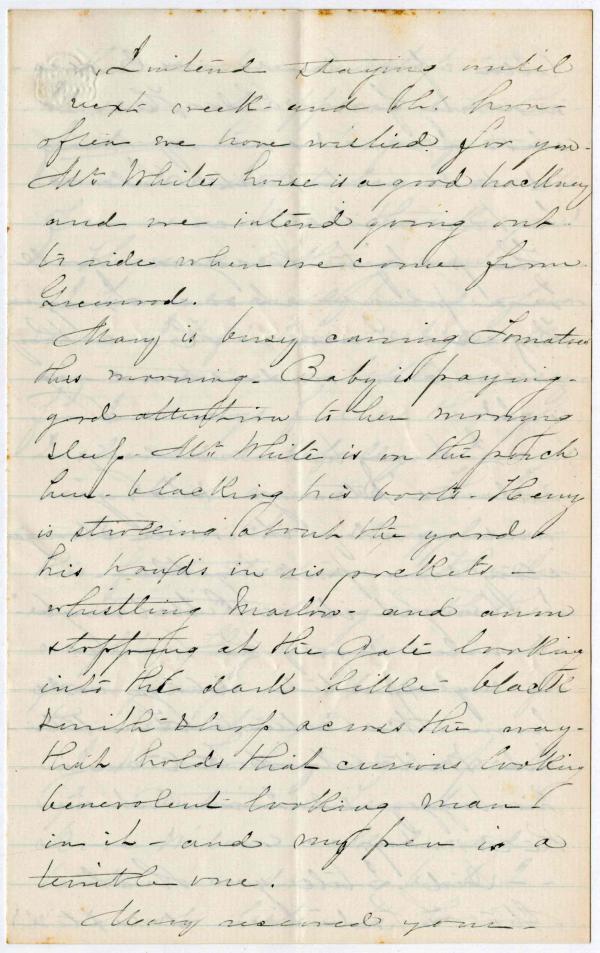 I intend staying until
next week - and Oh! how
often we have wished for you -
Mr White's horse is a good hackney
and we intend going out
to ride when we come from
Greenwood.
Mary is busy canning Tomatoes
this morning - Baby is paying -
good attention to her morning
sleep. Mr White is on the porch
here - blacking his boots - Henry
is strolling about the yard
his hands in his pockets -
whistling - and anon
stopping at the gate looking
into the dark little black
smith shop across the way -
that holds that curious looking
benevolent looking man
in it - and my pen is a
terrible one.
Mary received your -